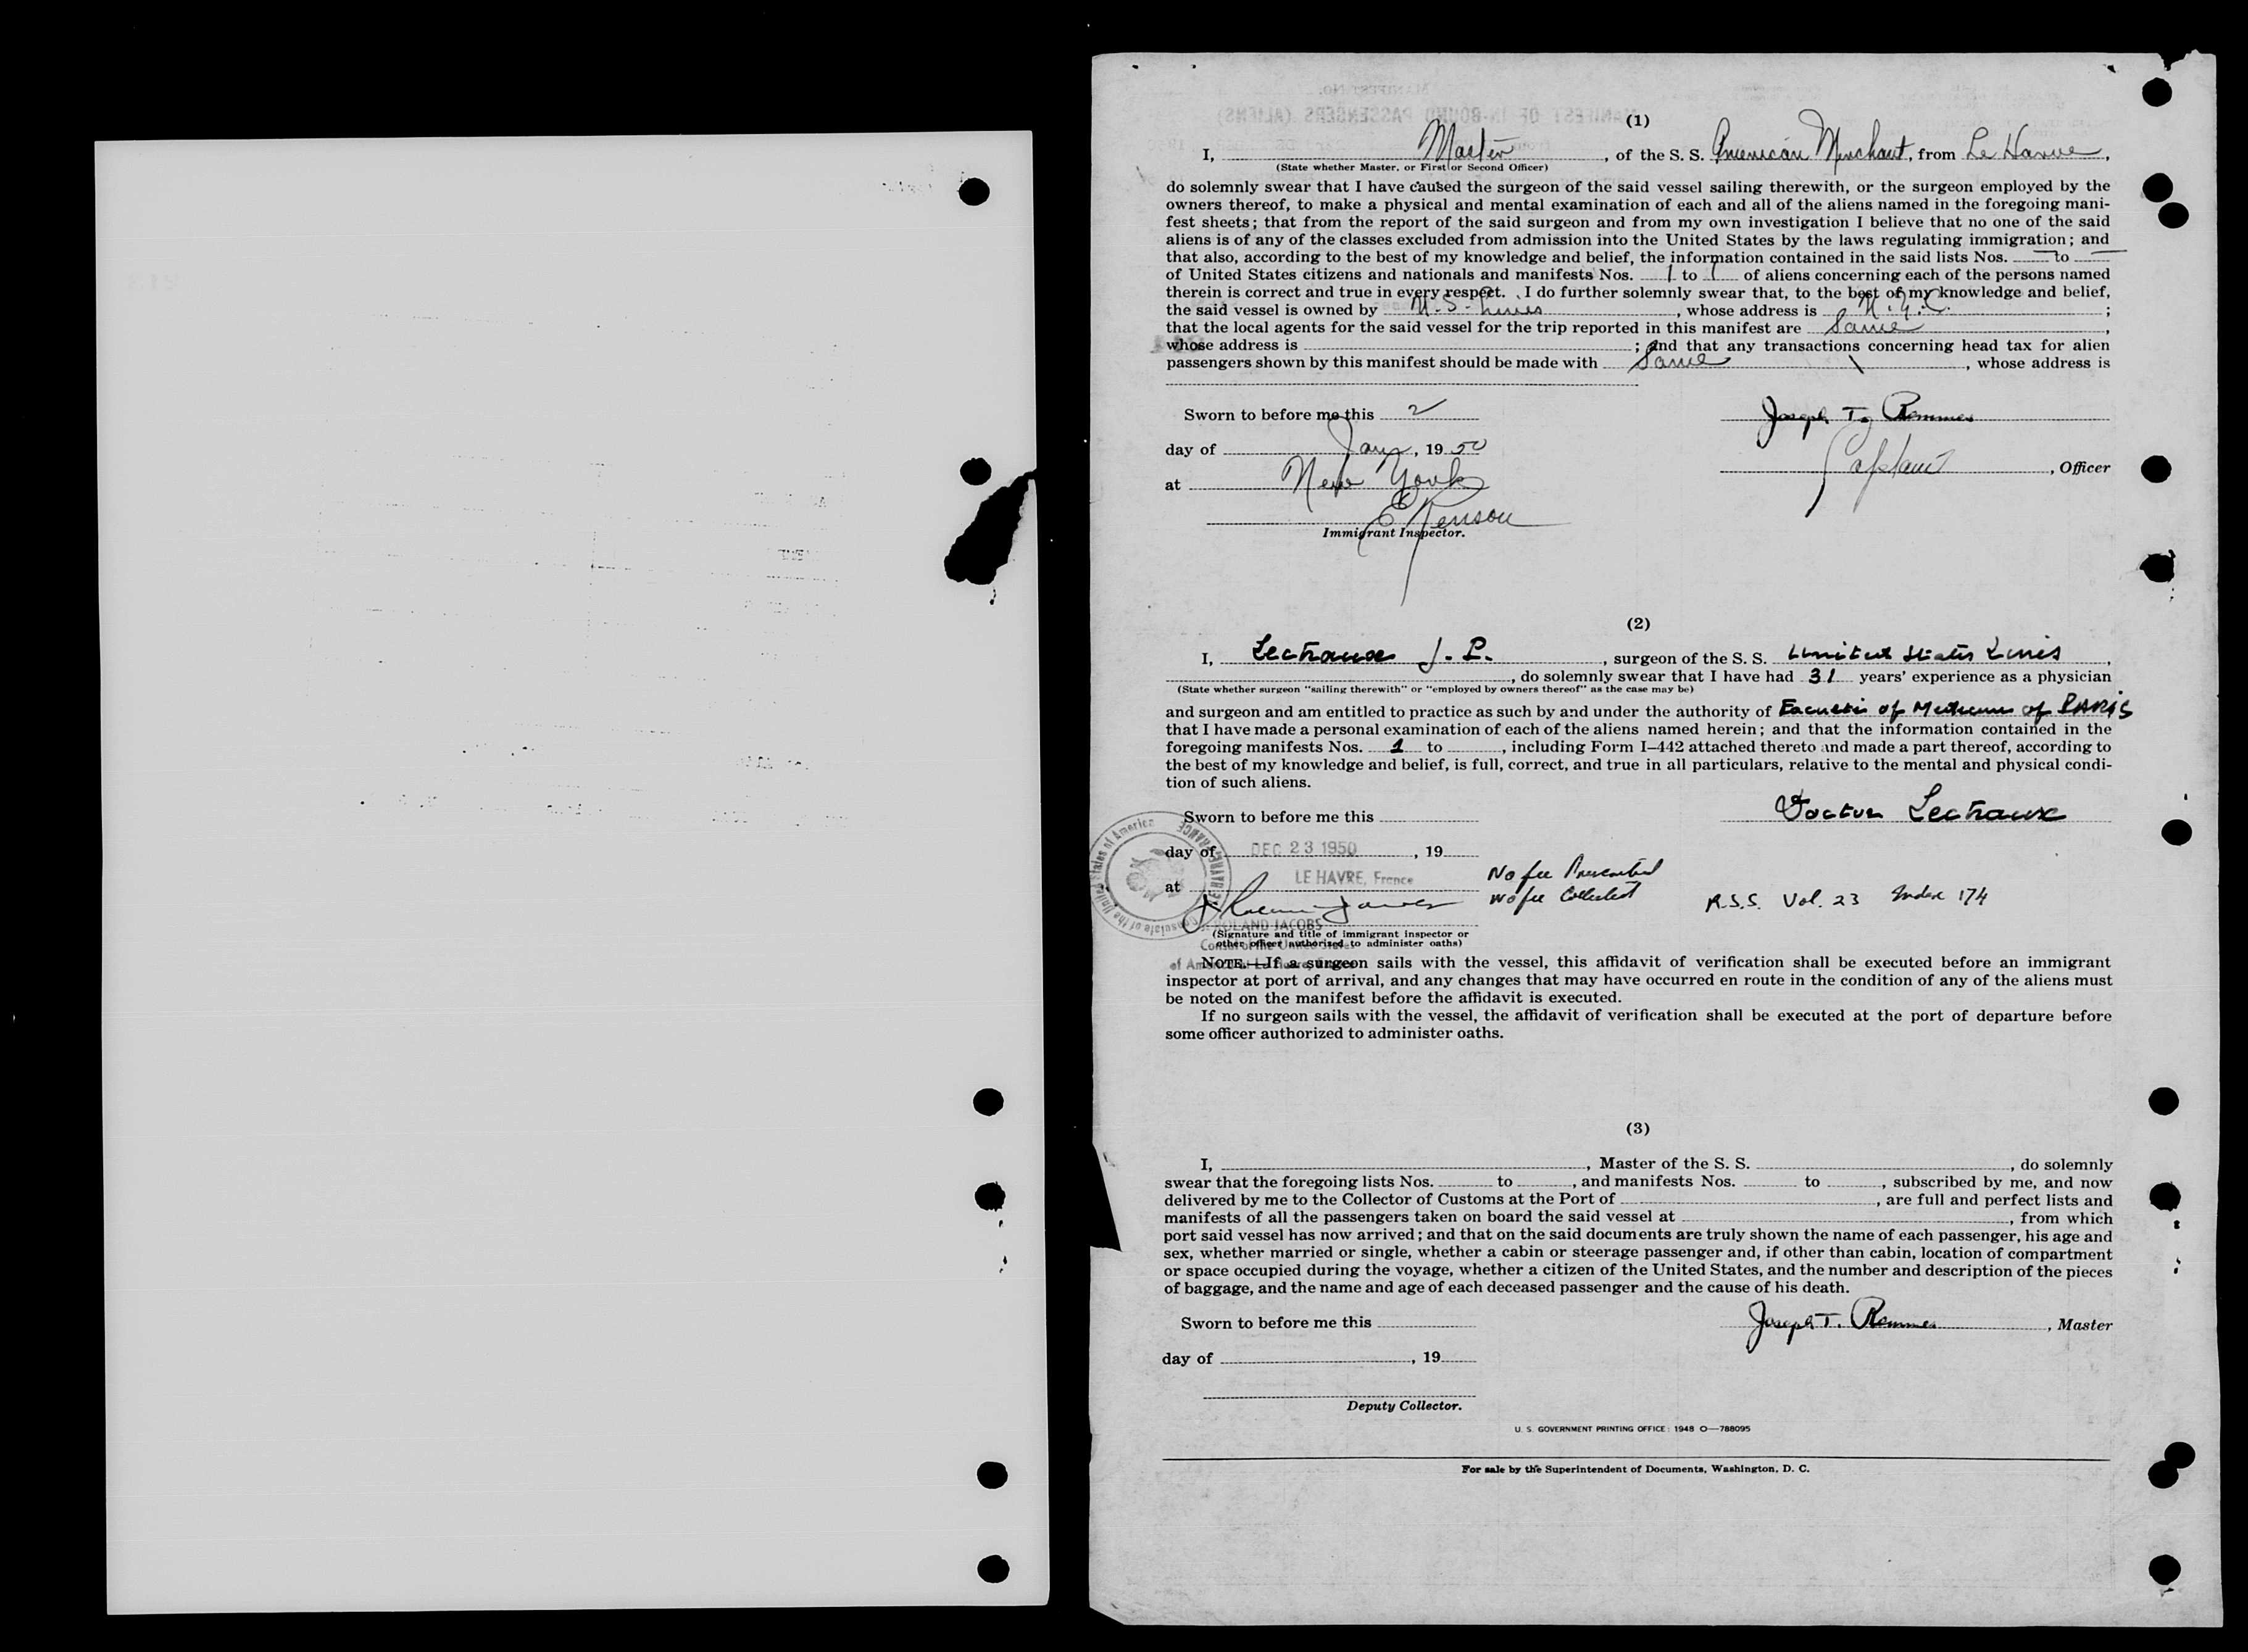 (1)
I, Master, of the S. S. American Merchant, from Le Havre,
(State whether Master, or First or Second Officer)
do solemnly swear that I have caused the surgeon of the said vessel sailing therewith, or the surgeon employed by the
owners thereof, to make a physical and mental examination of each and all of the aliens named in the foregoing mani-
fest sheets; that from the report of the said surgeon and from my own investigation I believe that no one of the said
aliens is of any of the classes excluded from admission into the United States by the laws regulating immigration; and
that also, according to the best of my knowledge and belief, the information contained in the said lists Nos. — to —
of United States citizens and nationals and manifests Nos. 1 to 1 of aliens concerning each of the persons named
therein is correct and true in every respect. I do further solemnly swear that, to the best of my knowledge and belief,
the said vessel is owned by U.S. Lines, whose address is N.Y.C. ;
that the local agents for the said vessel for the trip reported in this manifest are Same,
whose address is ; and that any transactions concerning head tax for alien
passengers shown by this manifest should be made with Same, whose address is
Sworn to before me this 2
Joseph T.
day of Jan, 19 50
Captain, Officer
at New York
Immigrant Inspector.
(2)
I, Lechaux J. P., surgeon of the S. S. United States Lines,
, do solemnly swear that I have had 31 years' experience as a physician
(State whether surgeon "sailing therewith" or "employed by owners thereof" as the case may be)
and surgeon and am entitled to practice as such by and under the authority of of PARIS
that I have made a personal examination of each of the aliens named herein; and that the information contained in the
foregoing manifests Nos. 1 to , including Form I–442 attached thereto and made a part thereof, according to
the best of my knowledge and belief, is full, correct, and true in all particulars, relative to the mental and physical condi-
tion of such aliens.
Doctor Lechaux
Sworn to before me this
day of DEC 23 1950, 19
at LE HAVRE, France
No fee Prescribed
No fee Collected
R.S.S. Vol. 23 Index 174
ROLAND JACOBS
(Signature and title of immigrant inspector or
other officer authorized to administer oaths)
Consul of the United States
of America at Le Havre, France
Consulate of the United States of America
HAVRE, FRANCE
NOTE.—If a surgeon sails with the vessel, this affidavit of verification shall be executed before an immigrant
inspector at port of arrival, and any changes that may have occurred en route in the condition of any of the aliens must
be noted on the manifest before the affidavit is executed.
If no surgeon sails with the vessel, the affidavit of verification shall be executed at the port of departure before
some officer authorized to administer oaths.
(3)
I, , Master of the S. S. , do solemnly
swear that the foregoing lists Nos. to , and manifests Nos. to , subscribed by me, and now
delivered by me to the Collector of Customs at the Port of , are full and perfect lists and
manifests of all the passengers taken on board the said vessel at , from which
port said vessel has now arrived; and that on the said documents are truly shown the name of each passenger, his age and
sex, whether married or single, whether a cabin or steerage passenger and, if other than cabin, location of compartment
or space occupied during the voyage, whether a citizen of the United States, and the number and description of the pieces
of baggage, and the name and age of each deceased passenger and the cause of his death.
Sworn to before me this
Joseph T. , Master
day of , 19
Deputy Collector.
U. S. GOVERNMENT PRINTING OFFICE: 1948 O—788095
For sale by the Superintendent of Documents, Washington, D. C.